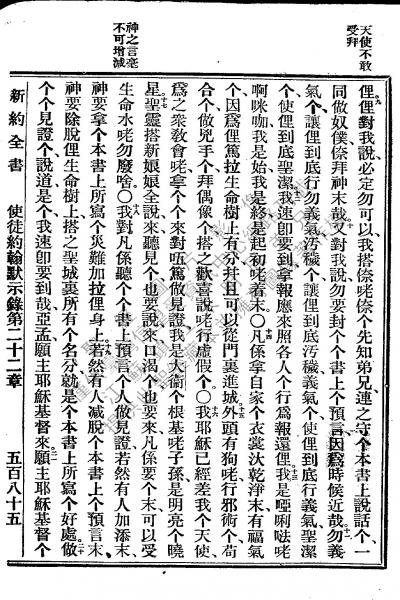 天使不敢
受拜
神之言毫
不可增減
俚俚對我說必定勿可以我搭倷咾倷个先知弟兄連之守个本書上說話个一
同做奴僕倷拜神末哉又對我說勿要封个个書上个預言因爲時候近哉勿義
氣个讓俚到底行勿義氣汚穢个讓俚到底汚穢義氣个使俚到底行義氣聖潔
个使俚到底聖潔我速卽要到拿報應來照各人个行爲報還俚我是啞唎噠咾
啊咪咖我是始我是終是起初咾着末〇凡係拿自家个衣裳汏乾淨末有福氣
个因爲俚篤拉生命樹上有分幷且可以從門裏進城外頭有狗咾行邪術个苟
合个做兇手个拜偶像个搭之歡喜說咾行虛假个〇我耶穌已經差我个天使
爲之衆敎會咾拿个个來對篤做見證我是大衞个根基咾子孫是明亮个曉
星聖靈搭新娘娘全說來聽見个也要說來口渴个也要來凡係要个末可以受
生命水咾勿廢啥〇我對凡係聽个个書上預言个人做見證若然有人加添末
神要拿个本書上所寫个災難加拉俚身上若然有人減脫个本書上个預言末
神要除脫俚生命樹上搭之聖城裏所有个名分就是个本書上所寫个好處做
个个見證个說道是个我速卽要到哉亞孟願主耶穌基督來願主耶穌基督个
新約全書 使徒約翰默示錄第二十二章 五百八十五